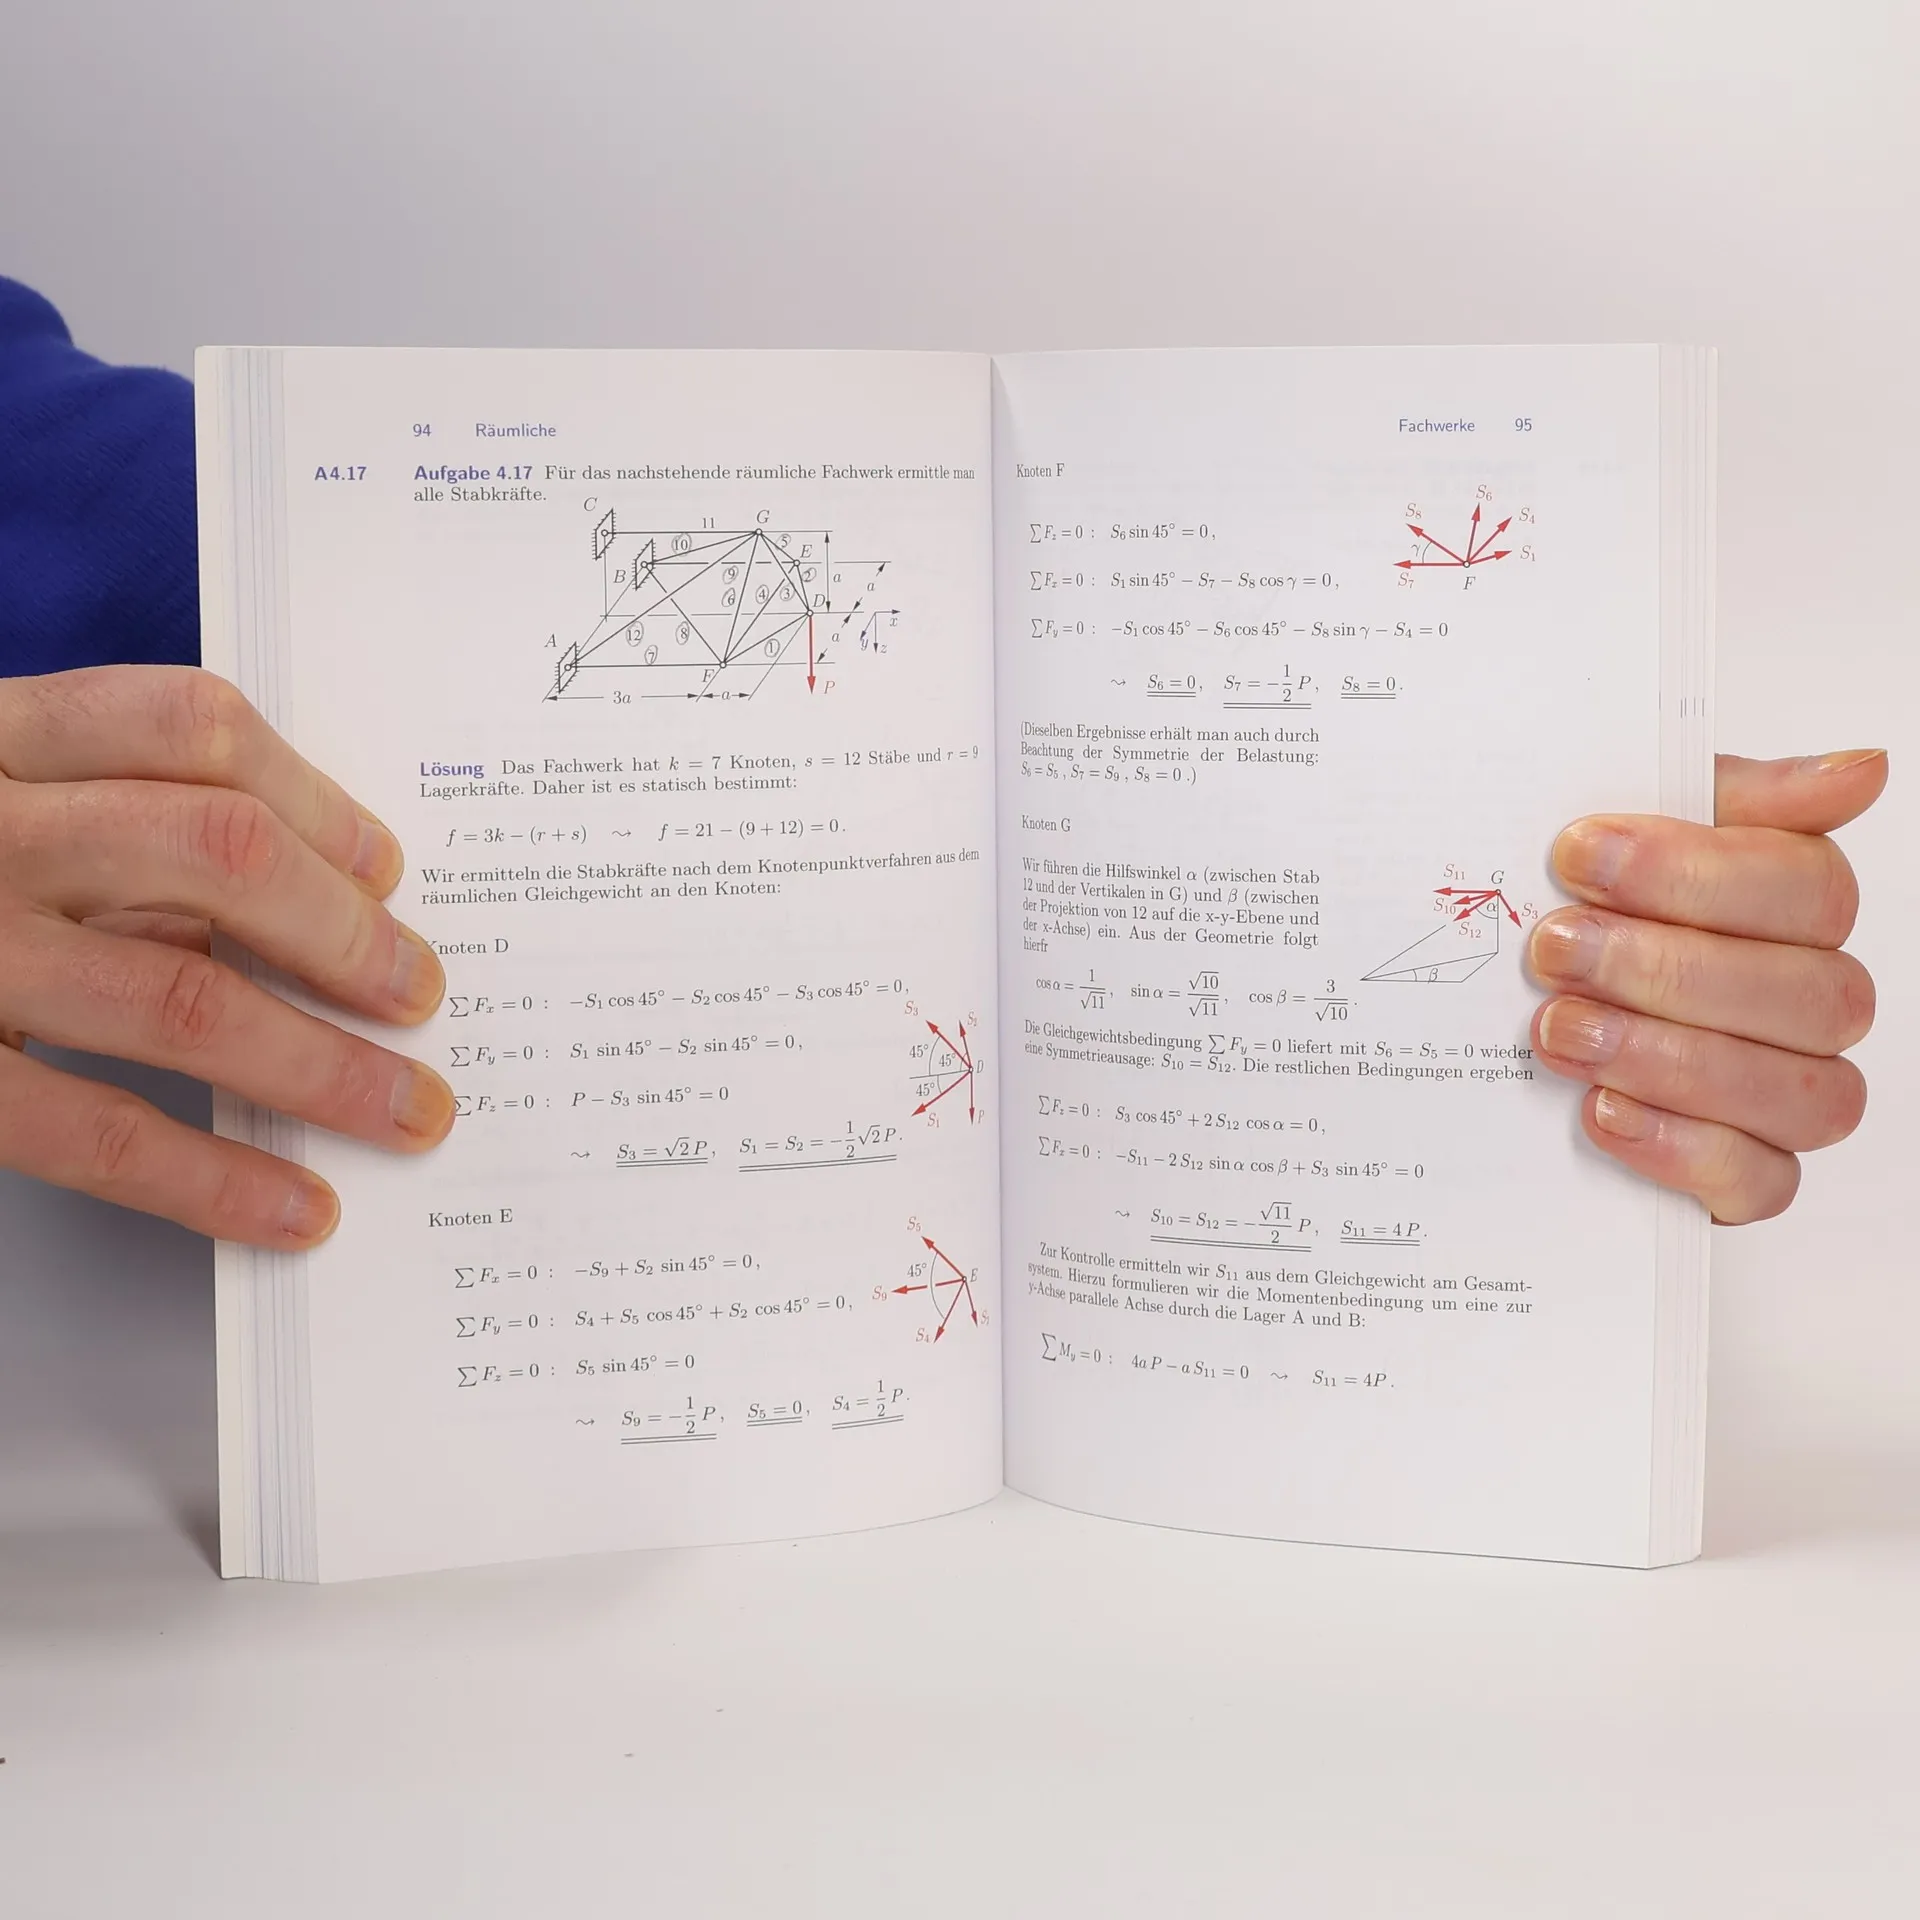 94 Räumliche
A4.17 Aufgabe 4.17 Für das nachstehende räumliche Fachwerk ermittle man
alle Stabkräfte.
C
11
G
10
5
E
B
9
2
a
a
6
4
3
D
x
A
12
8
1
a
y
z
7
F
3a
a
P
Lösung Das Fachwerk hat k = 7 Knoten, s = 12 Stäbe und r = 9
Lagerkräfte. Daher ist es statisch bestimmt:
f = 3k − (r + s) ⇝ f = 21 − (9 + 12) = 0.
Wir ermitteln die Stabkräfte nach dem Knotenpunktverfahren aus dem
räumlichen Gleichgewicht an den Knoten:
Knoten D
∑ Fx = 0 : −S1 cos 45° − S2 cos 45° − S3 cos 45° = 0,
∑ Fy = 0 : S1 sin 45° − S2 sin 45° = 0,
∑ Fz = 0 : P − S3 sin 45° = 0
⇝ S3 = √2 P, S1 = S2 = −1/2 √2 P.
S3
S2
45°
45°
D
45°
S1
P
Knoten E
∑ Fx = 0 : −S9 + S2 sin 45° = 0,
∑ Fy = 0 : S4 + S5 cos 45° + S2 cos 45° = 0,
∑ Fz = 0 : S5 sin 45° = 0
⇝ S9 = −1/2 P, S5 = 0, S4 = 1/2 P.
S5
45°
E
S9
S4
Fachwerke 95
Knoten F
∑ Fz = 0 : S6 sin 45° = 0,
∑ Fz = 0 : S1 sin 45° − S7 − S8 cos γ = 0,
∑ Fy = 0 : −S1 cos 45° − S6 cos 45° − S8 sin γ − S4 = 0
⇝ S6 = 0, S7 = −1/2 P, S8 = 0.
S6
S8
S4
γ
S1
S7
F
(Dieselben Ergebnisse erhält man auch durch
Beachtung der Symmetrie der Belastung:
S6 = S5, S7 = S9, S8 = 0.)
Knoten G
Wir führen die Hilfswinkel α (zwischen Stab
12 und der Vertikalen in G) und β (zwischen
der Projektion von 12 auf die x-y-Ebene und
der x-Achse) ein. Aus der Geometrie folgt
hierfr
S11
G
S10
α
S3
S12
β
cos α = 1/√11, sin α = √10/√11, cos β = 3/√10.
Die Gleichgewichtsbedingung ∑ Fy = 0 liefert mit S6 = S5 = 0 wieder
eine Symmetrieausage: S10 = S12. Die restlichen Bedingungen ergeben
∑ Fz = 0 : S3 cos 45° + 2 S12 cos α = 0,
∑ Fz = 0 : −S11 − 2 S12 sin α cos β + S3 sin 45° = 0
⇝ S10 = S12 = −√11/2 P, S11 = 4 P.
Zur Kontrolle ermitteln wir S11 aus dem Gleichgewicht am Gesamt-
system. Hierzu formulieren wir die Momentenbedingung um eine zur
y-Achse parallele Achse durch die Lager A und B:
∑ My = 0 : 4a P − a S11 = 0 ⇝ S11 = 4P.